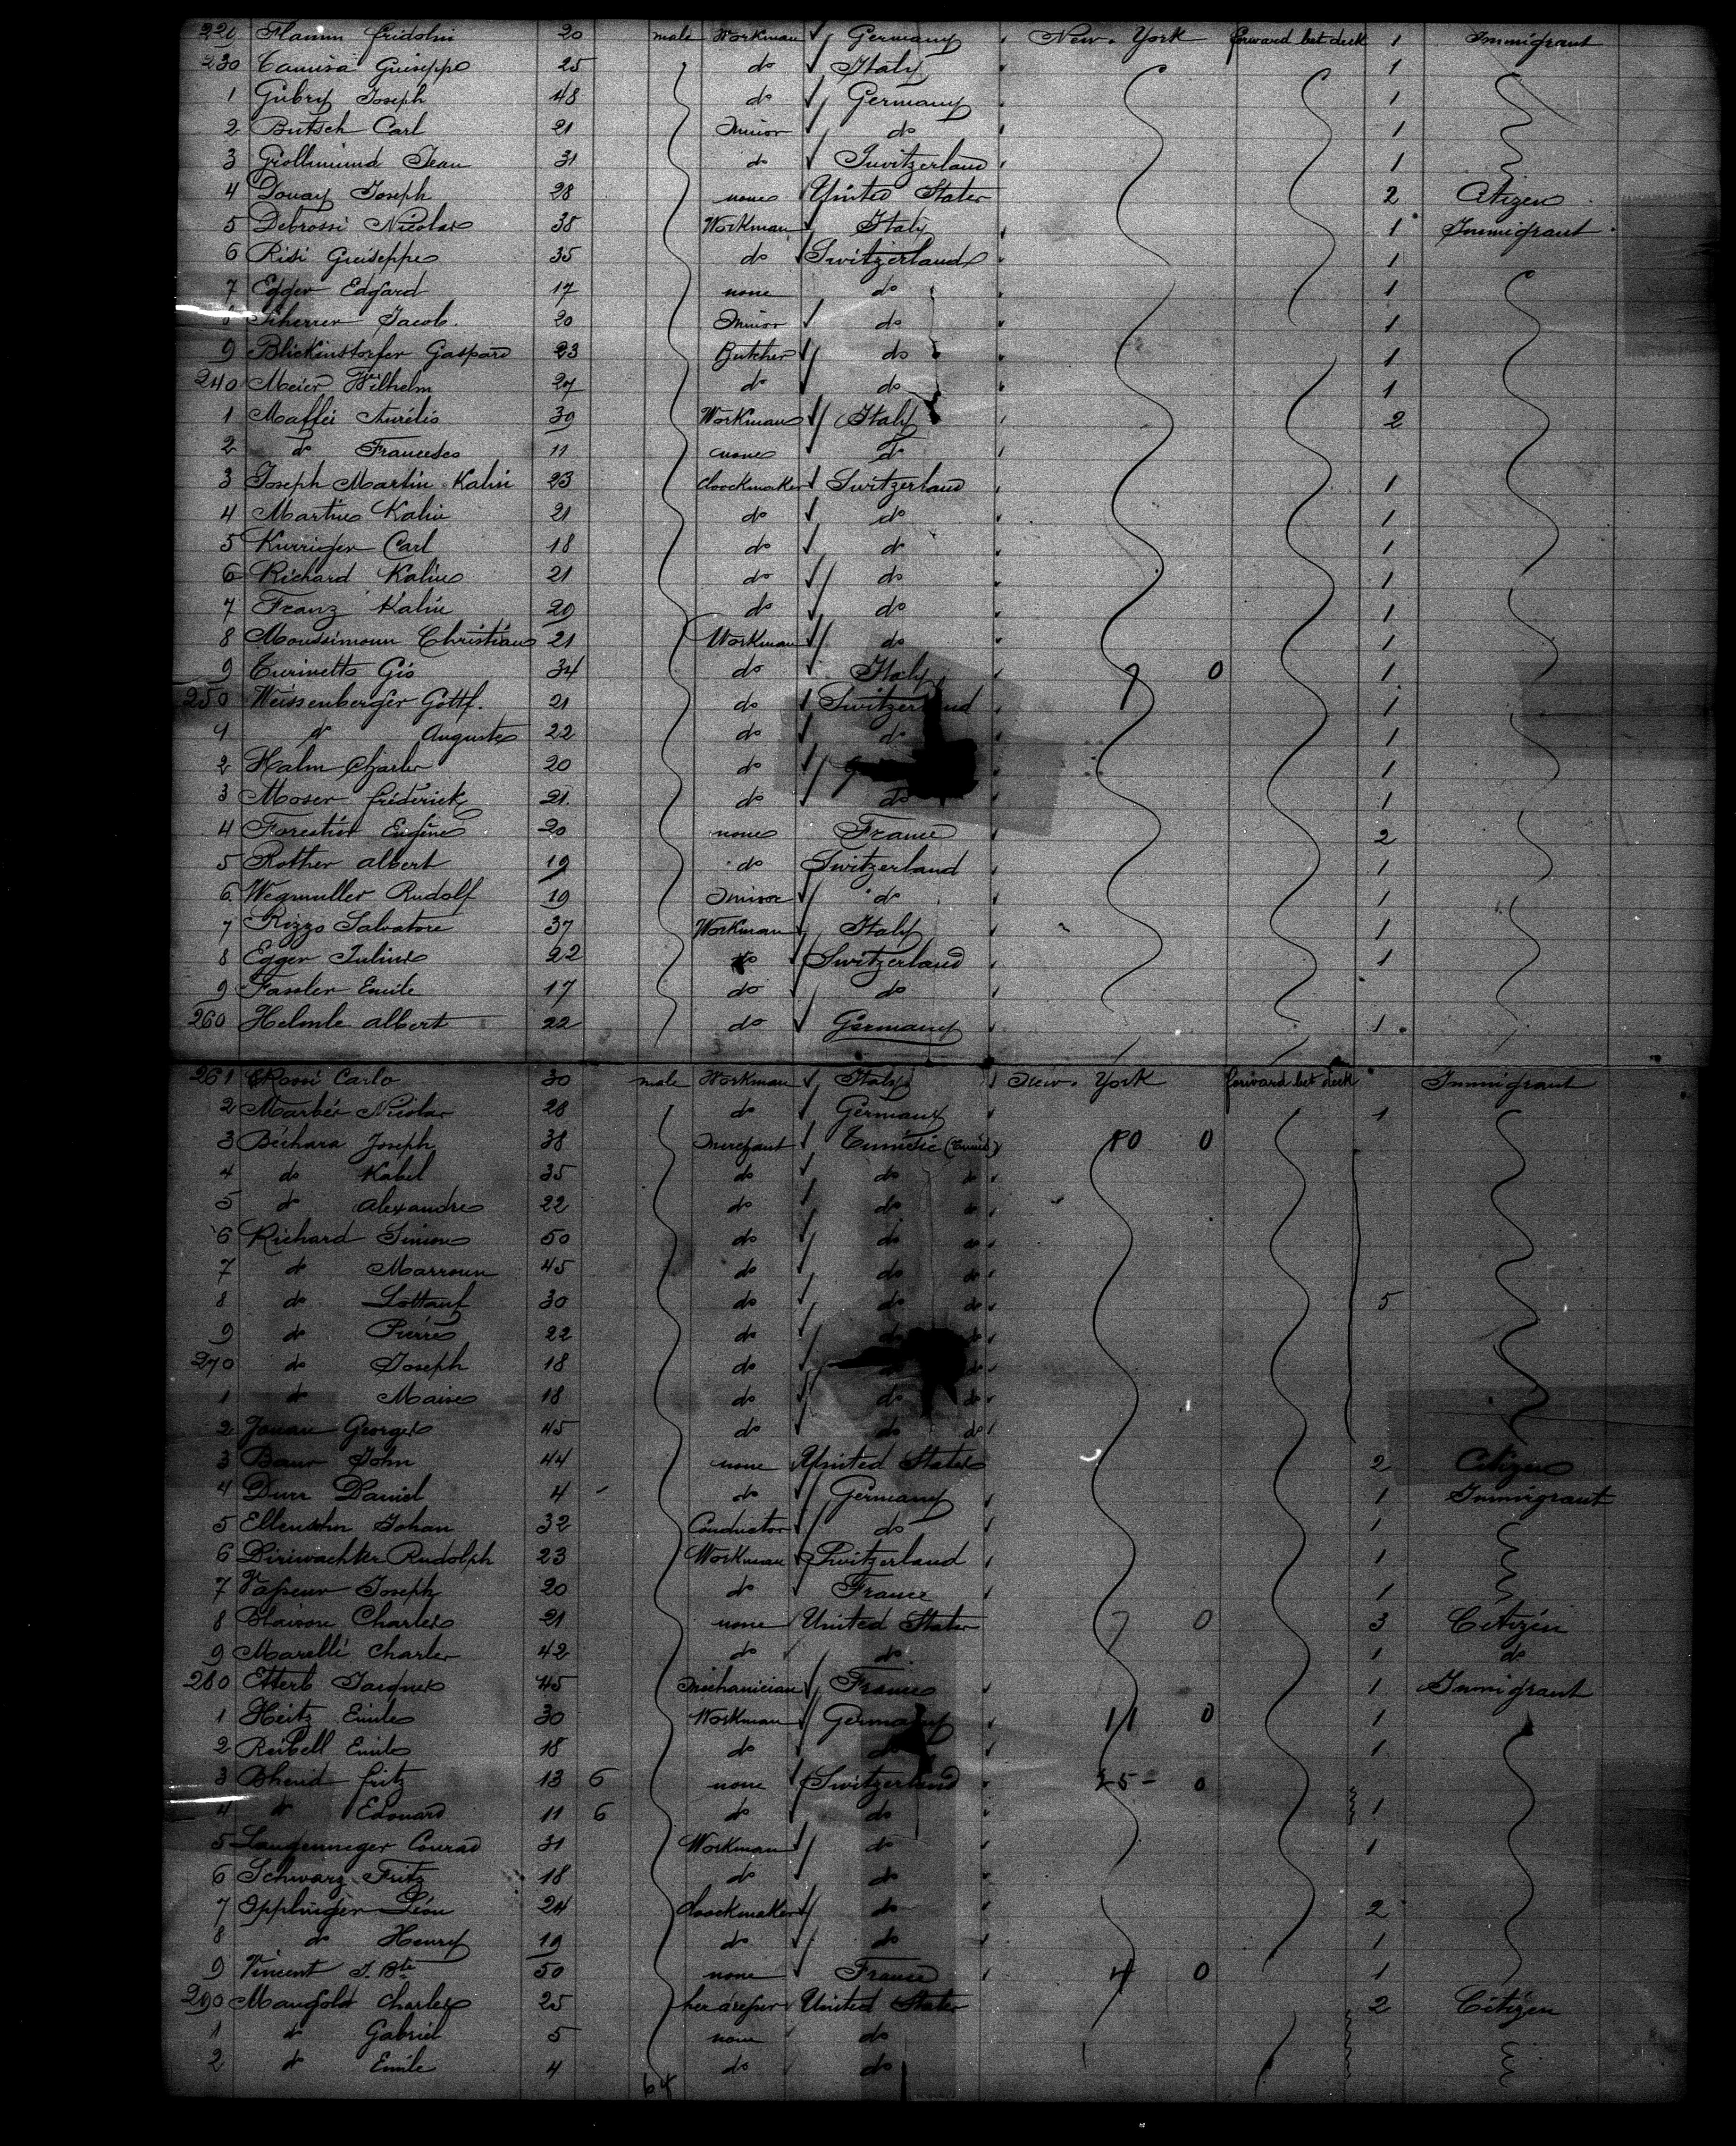 229 Flamm Fridolin 20 male Workman Germany New York forward bet deck 1 Immigrant
230 Camisa Guiseppe 25 do Italy 1
1 Gubry Joseph 48 do Germany 1
2 Butsch Carl 21 Minor do 1
3 Grollimund Jean 31 do Switzerland 1
4 Douay Joseph 28 none United States 2 Citizen
5 Debrossi Nicolas 38 Workman Italy 1 Immigrant
6 Risi Guiseppe 35 do Switzerland 1
7 Egger Edgard 17 none do 1
8 Scherrer Jacob. 20 Minor do 1
9 Blickinstorfer Gaspard 23 Butcher do 1
240 Meier Wilhelm 27 do do 1
1 Maffei Aurélio 39 Workman Italy 2
2 do Francesco 11 none do
3 Joseph Martin Kalin 23 cloockmaker Switzerland 1
4 Martin Kalin 21 do do 1
5 Kurriger Carl 18 do do 1
6 Richard Kalin 21 do do 1
7 Franz Kalin 29 do do 1
8 Moussimoun Christian 21 Workman do 1
9 Turinetto Gio 34 do Italy 7 0 1
250 Weissenberger Gottf. 21 do Switzerland 1
1 do Auguste 22 do do 1
2 Halm Charles 20 do 1
3 Moser fréderick 21 do do 1
4 Forestier Eugène 20 none France 2
5 Rother albert 19 do Switzerland 1
6 Wegmuller Rudolf 19 Minor do 1
7 Rizzo Salvatore 37 Workman Italy 1
8 Egger Julius 22 do Switzerland 1
9 Fassler Emile 17 do do
260 Helmle albert 22 do Germany 1
261 Rossi Carlo 30 male Workman Italy New York forward bet deck Immigrant
2 Marbér Nicolas 28 do Germany 1
3 Béchara Joseph 38 Merchant Tunisie (Tunis) 80 0
4 do Kabel 35 do do do
5 do Alexandre 22 do do do
6 Richard Simon 50 do do do
7 do Marroun 45 do do do
8 do Lottauf 30 do do do 5
9 do Pierre 22 do do do
270 do Joseph 18 do do do
1 do Maise 18 do do do
2 Jouan Georges 45 do do do
3 Baur John 44 none United States 2 Citizen
4 Durr Daniel 4 do Germany 1 Immigrant
5 Ellensohn Johan 32 Conductor do 1
6 Diriwachter Rudolph 23 Workman Switzerland 1
7 Vasseur Joseph 20 do France 1
8 Blaison Charles 21 none United States 7 0 3 Citizen
9 Marelli Charles 42 do do 1 do
280 Etterb Jacques 45 Mechanician France 1 Immigrant
1 Heitz Emile 30 Workman Germany 11 0 1
2 Reibell Emile 18 do do 1
3 Bhend fritz 13 6 none Switzerland 25 - 0
4 do Edouard 11 6 do do 1
5 Langenneger Conrad 31 Workman do 1
6 Schwarz Fritz 18 do do
7 Opplinger Léon 24 cloockmaker do 2
8 do Henry 19 do do 1
9 Vincent J. Bte 50 none France 4 0 1
290 Mangold Charles 25 United States 2 Citizen
1 do Gabriel 5 none do
2 do Emile 4 do do
64